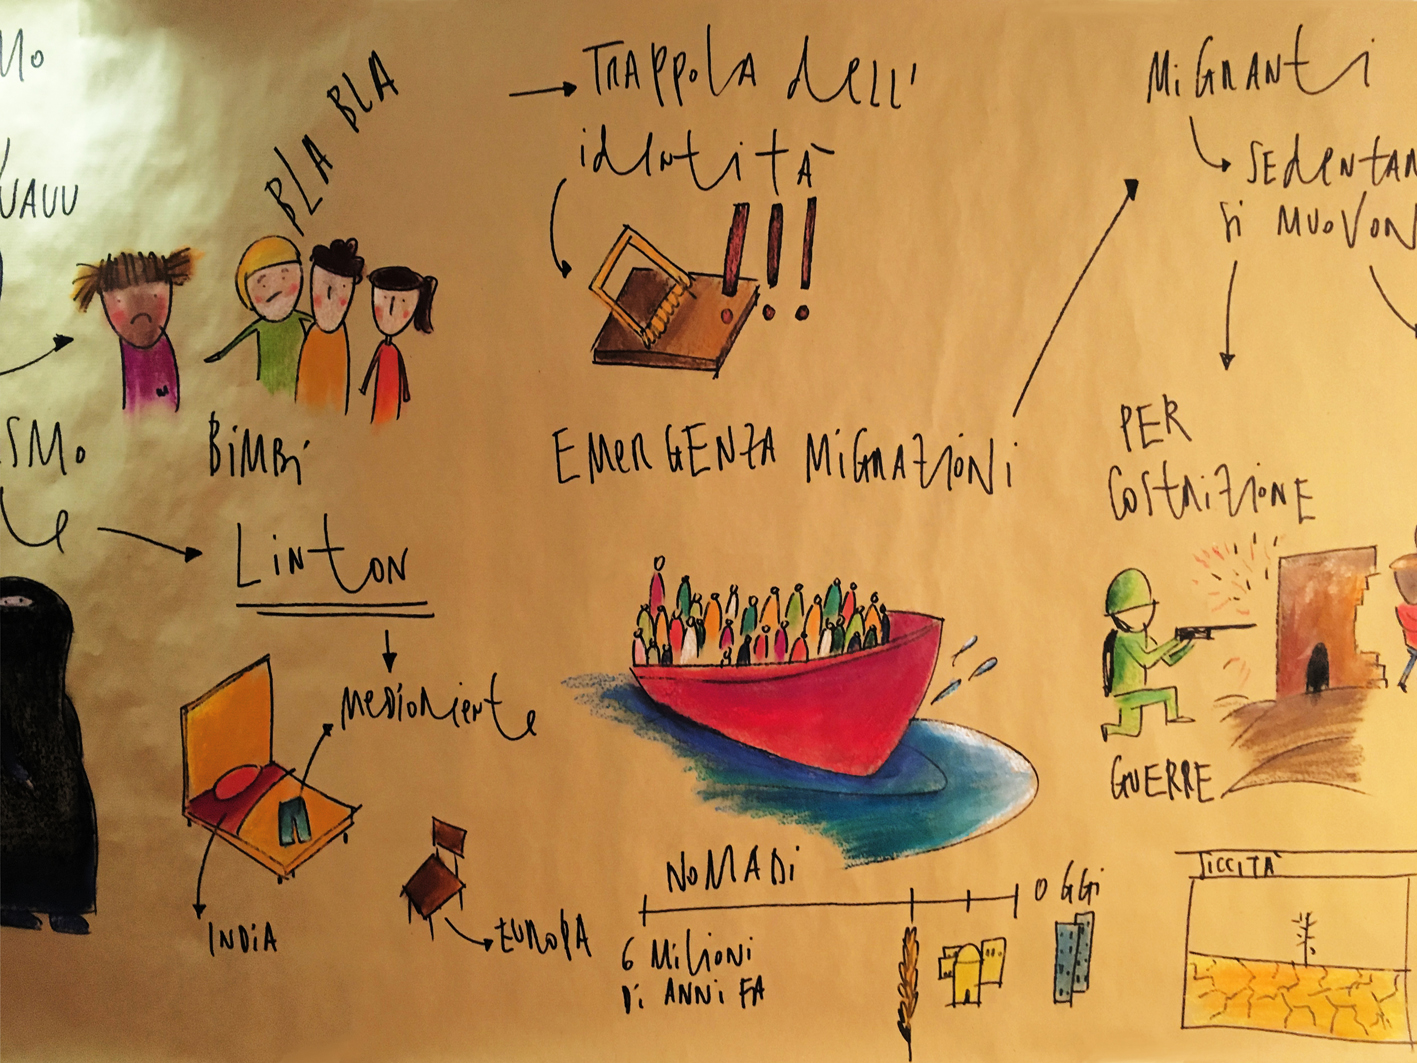 BLA BLA
TRAPPOLA dell'
identità
!!!
BiMBi
Linton
MEDiORiente
iNDiA
EUROPA
EMERGENZA MiGRAZiONi
NOMADi
OGGi
6 MiliONi
Di ANNi FA
MiGRANti
Si MUOVON
PER
COStRiZiONE
GUERRE
SiCCiTÀ